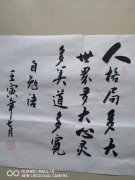 人格局多大
世界多大心灵
多美道多宽
自勉语
壬寅年七月